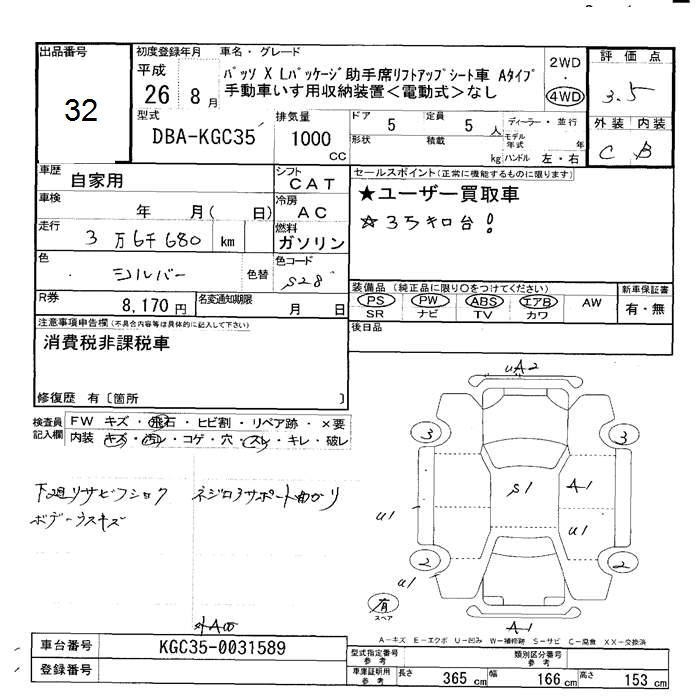 出品番号
32
初度登録年月
平成
26 8 月
車名・グレード
パッソ X Lパッケージ助手席リフトアップシート車 Aタイプ
手動車いす用収納装置<電動式>なし
2WD
・
4WD
評価点
3.5
外装 内装
C B
型式
DBA-KGC35
排気量
1000
CC
ドア
5
定員
5 人
形状
積載
kg
ディーラー・並行
モデル年式
年
ハンドル 左・右
車歴
自家用
シフト
CAT
車検
年 月( 日)
冷房
AC
走行
3万6千680 km
燃料
ガソリン
色
シルバー
色替
色コード
S28
R券
8,170円
名変通知期限
月 日
セールスポイント(正常に機能するものに限ります)
★ユーザー買取車
☆35キロ台!
装備品(純正品に限り○をつけてください)
PS PW ABS エアB AW
SR ナビ TV カワ
新車保証書
有・無
後日品
注意事項申告欄(不具合内容等は具体的に記入して下さい)
消費税非課税車
修復歴 有〔箇所 〕
検査員
記入欄
FW キズ・飛石・ヒビ割・リペア跡・×要
内装 キズ・汚レ・コゲ・穴・スレ・キレ・破レ
下廻リサビフショク
ボデーウスキズ
ネジロアサポート曲ガリ
UA2
3
3
S1
A-1
U1
U1
2
2
U1
有
スペア
A-1
外A00
A-キズ E-エクボ U-凹み W-補修跡 S-サビ C-腐食 XX-交換済
車台番号
KGC35-0031589
登録番号
型式指定番号
参考
類別区分番号
参考
車庫証明用
参考
長さ
365 cm
幅
166 cm
高さ
153 cm